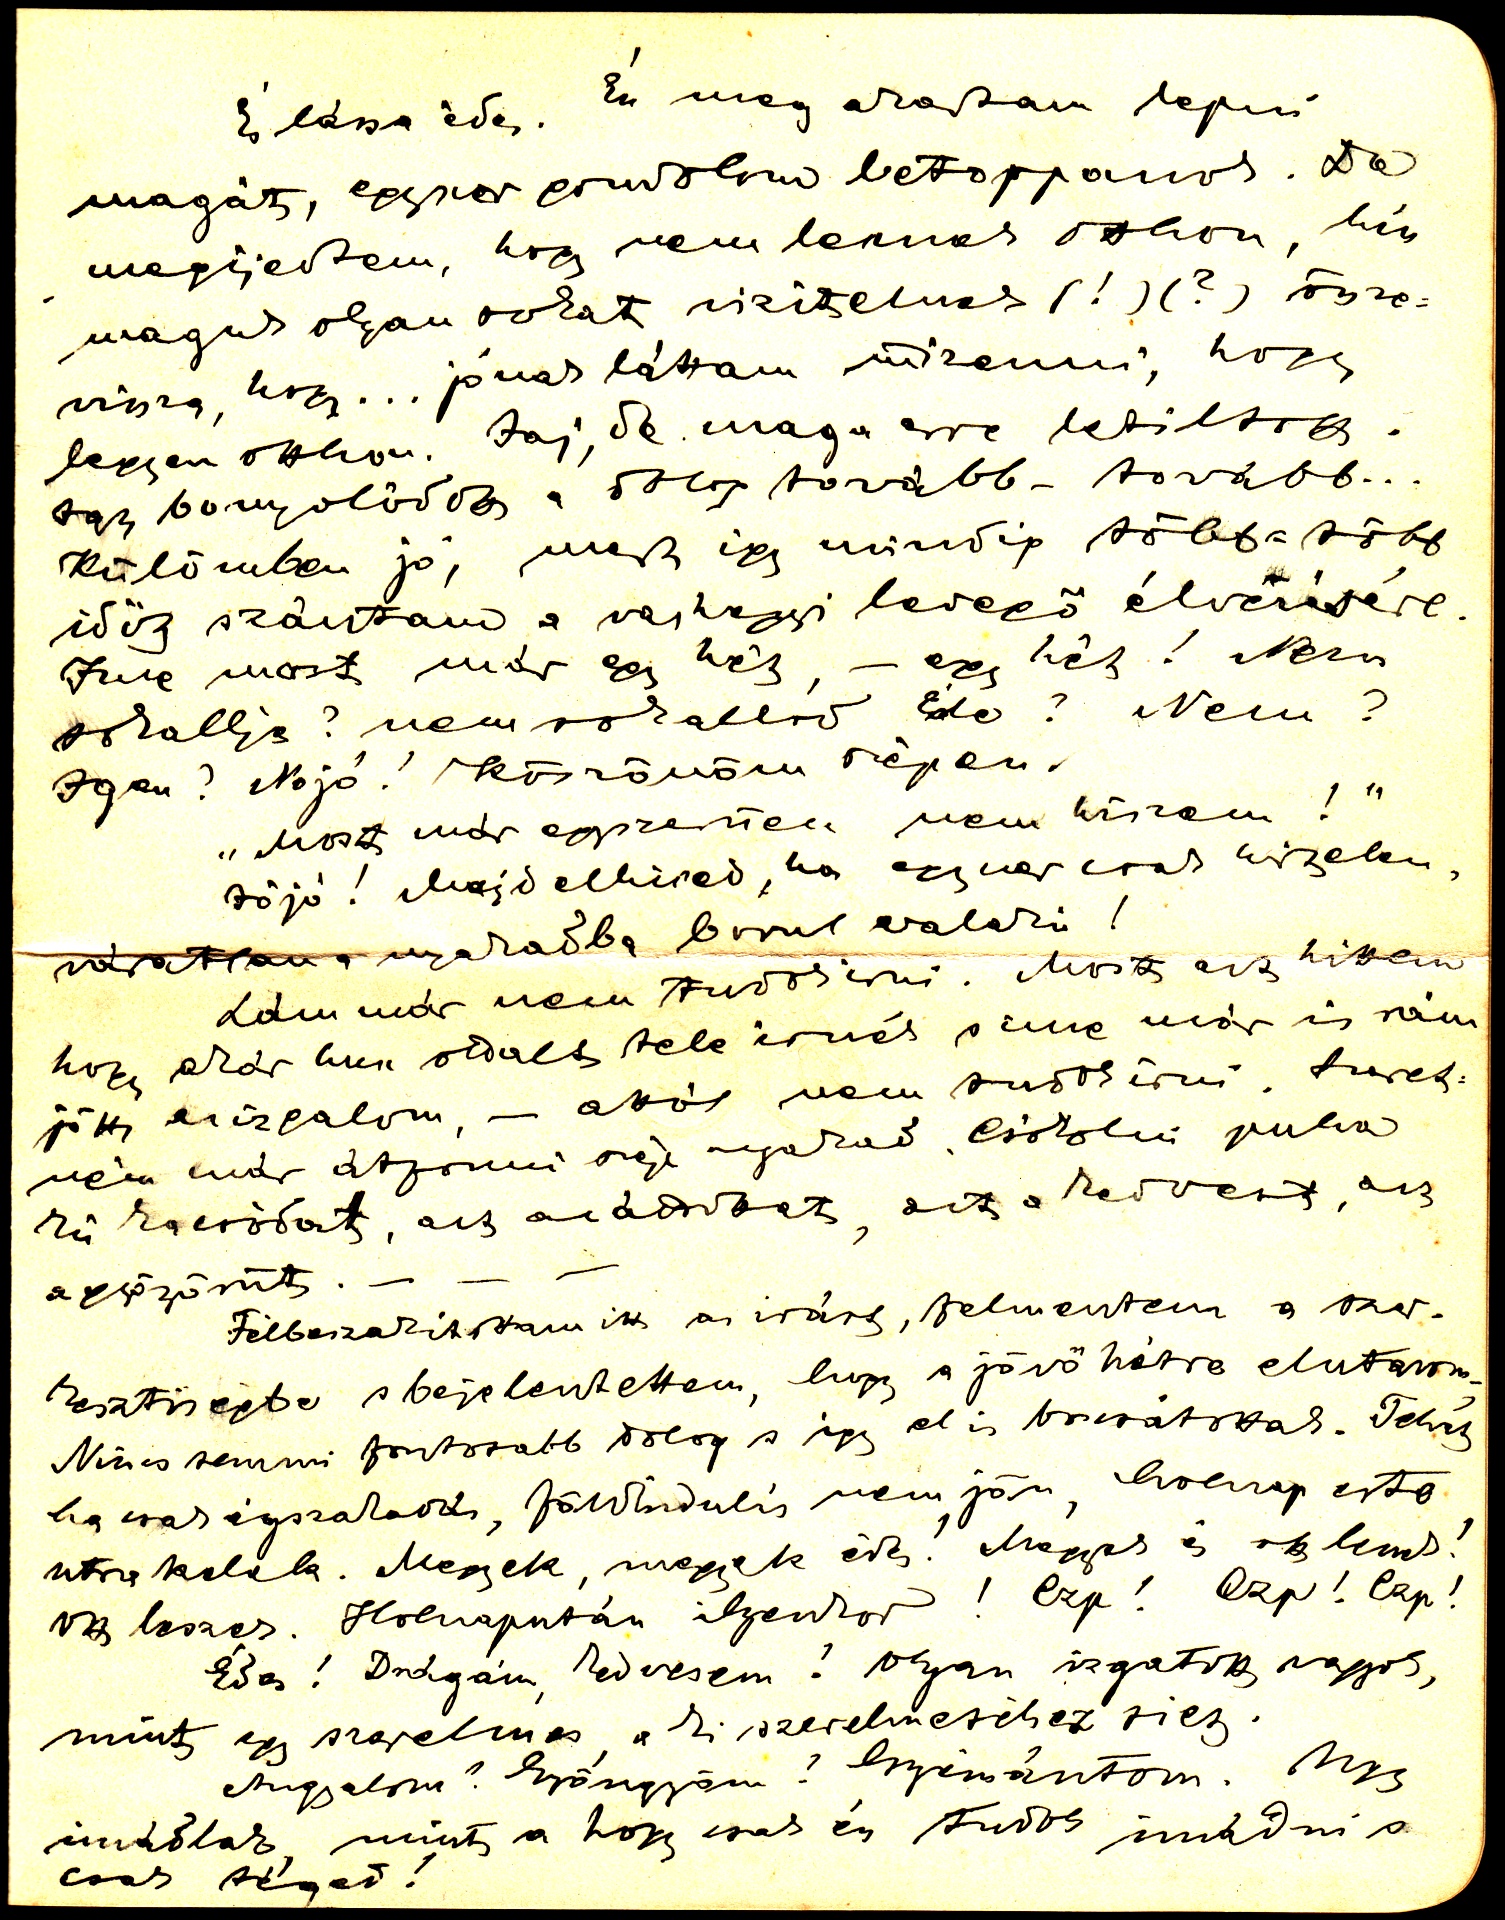 És lássa édes. Én meg akartam lepni
magát, egyszer gondolom betoppanok. De
megijedtem, hogy nem lesznek otthon, hisz
maguk olyan sokat viziteluek (!) (?) össze=
vissza, hogy... jónak láttam üzenni, hogy
legyen otthon. Jaj, de maga erre letiltogy.
Így bonyolódik a dolog tovább - tovább...
Külömben jó, mert így mindig több = több
időt szántam a vashegyi levegő élvezésére.
Ime most már egy hét, — egy hét! Nem
sokallja? nem sokallod Éde? Nem?
Igen? No jó! Köszönöm szépen.
„Most már egyszerűen nem hiszem!"
Jó jó! Majd elhiszed, ha egyszer csak hirtelen,
váratlan a nyakadba borul valaki!
Lám már nem tudok irni. Most azt hittem
hogy akár husz oldalt tele irnék s ime már is rám
jött az izgalom, — attól nem tudok irni. Szeret=
ném már átfonni szép nyakad. Csókolni puha
kis kacsódat, azt az ádsikat, azt a kedvest, azt
a gyönyörüt. — — —
Félbeszakitottam itt az irást, felmentem a szer-
kesztőségbe s bejelentettem, hogy a jövő hétre elutazom.
Nincs semmi fontosabb dolog s igy el is bocsátottak. Tehát
ha csak égszakadás, földindulás nem jön, holnap este
utra kelek. Megyek, megyek édes! Megyek és ott leszek!
Ott leszek. Holnapután ilyenkor! Czp! Czp! Czp!
Édes! Drágám, kedvesem! Olyan izgatott vagyok,
mint egy szerelmes, a ki szerelmeséhez siet.
Angyalom! Gyöngyöm! Gyémántom. Ugy
imádlak, mint a hogy csak én tudok imádni s
csak téged!